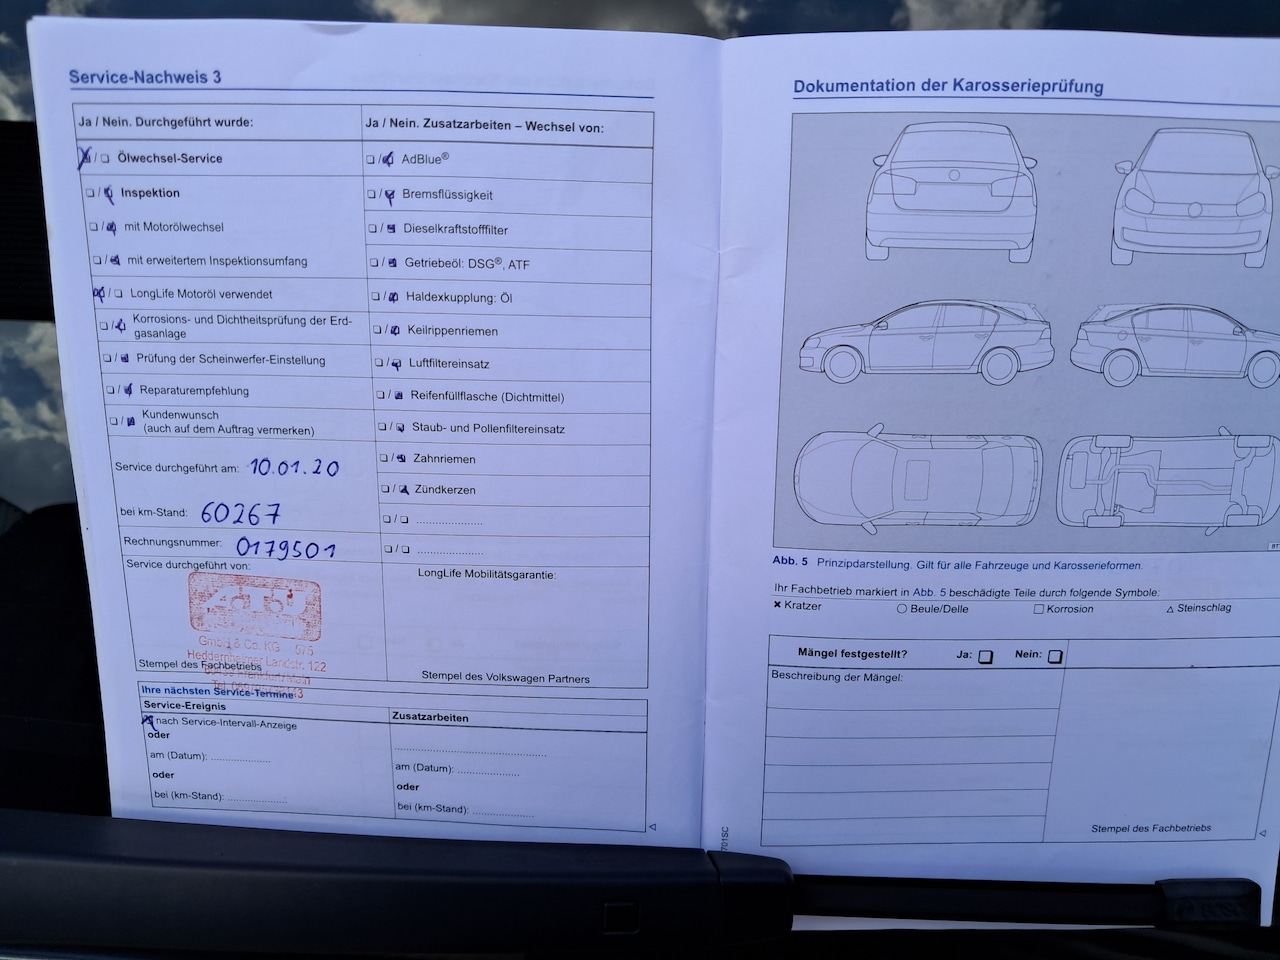 Service-Nachweis 3
Ja / Nein. Durchgeführt wurde:
Ölwechsel-Service
Inspektion
mit Motorölwechsel
mit erweitertem Inspektionsumfang
LongLife Motoröl verwendet
Korrosions- und Dichtheitsprüfung der Erd-
gasanlage
Prüfung der Scheinwerfer-Einstellung
Reparaturempfehlung
Kundenwunsch
(auch auf dem Auftrag vermerken)
Service durchgeführt am: 10.01.20
bei km-Stand: 60267
Rechnungsnummer: 0179501
Service durchgeführt von:
ATU
GmbH & Co. KG 575
Heddernheimer Landstr. 122
Stempel des Fachbetriebs
Ja / Nein. Zusatzarbeiten – Wechsel von:
AdBlue®
Bremsflüssigkeit
Dieselkraftstofffilter
Getriebeöl: DSG®, ATF
Haldexkupplung: Öl
Keilrippenriemen
Luftfiltereinsatz
Reifenfüllflasche (Dichtmittel)
Staub- und Pollenfiltereinsatz
Zahnriemen
Zündkerzen
LongLife Mobilitätsgarantie:
Stempel des Volkswagen Partners
Ihre nächsten Service-Termine
Service-Ereignis
nach Service-Intervall-Anzeige
oder
am (Datum):
oder
bei (km-Stand):
Zusatzarbeiten
am (Datum):
oder
bei (km-Stand):
Dokumentation der Karosserieprüfung
Abb. 5 Prinzipdarstellung. Gilt für alle Fahrzeuge und Karosserieformen.
Ihr Fachbetrieb markiert in Abb. 5 beschädigte Teile durch folgende Symbole:
Kratzer Beule/Delle Korrosion Steinschlag
Mängel festgestellt? Ja: Nein:
Beschreibung der Mängel:
Stempel des Fachbetriebs